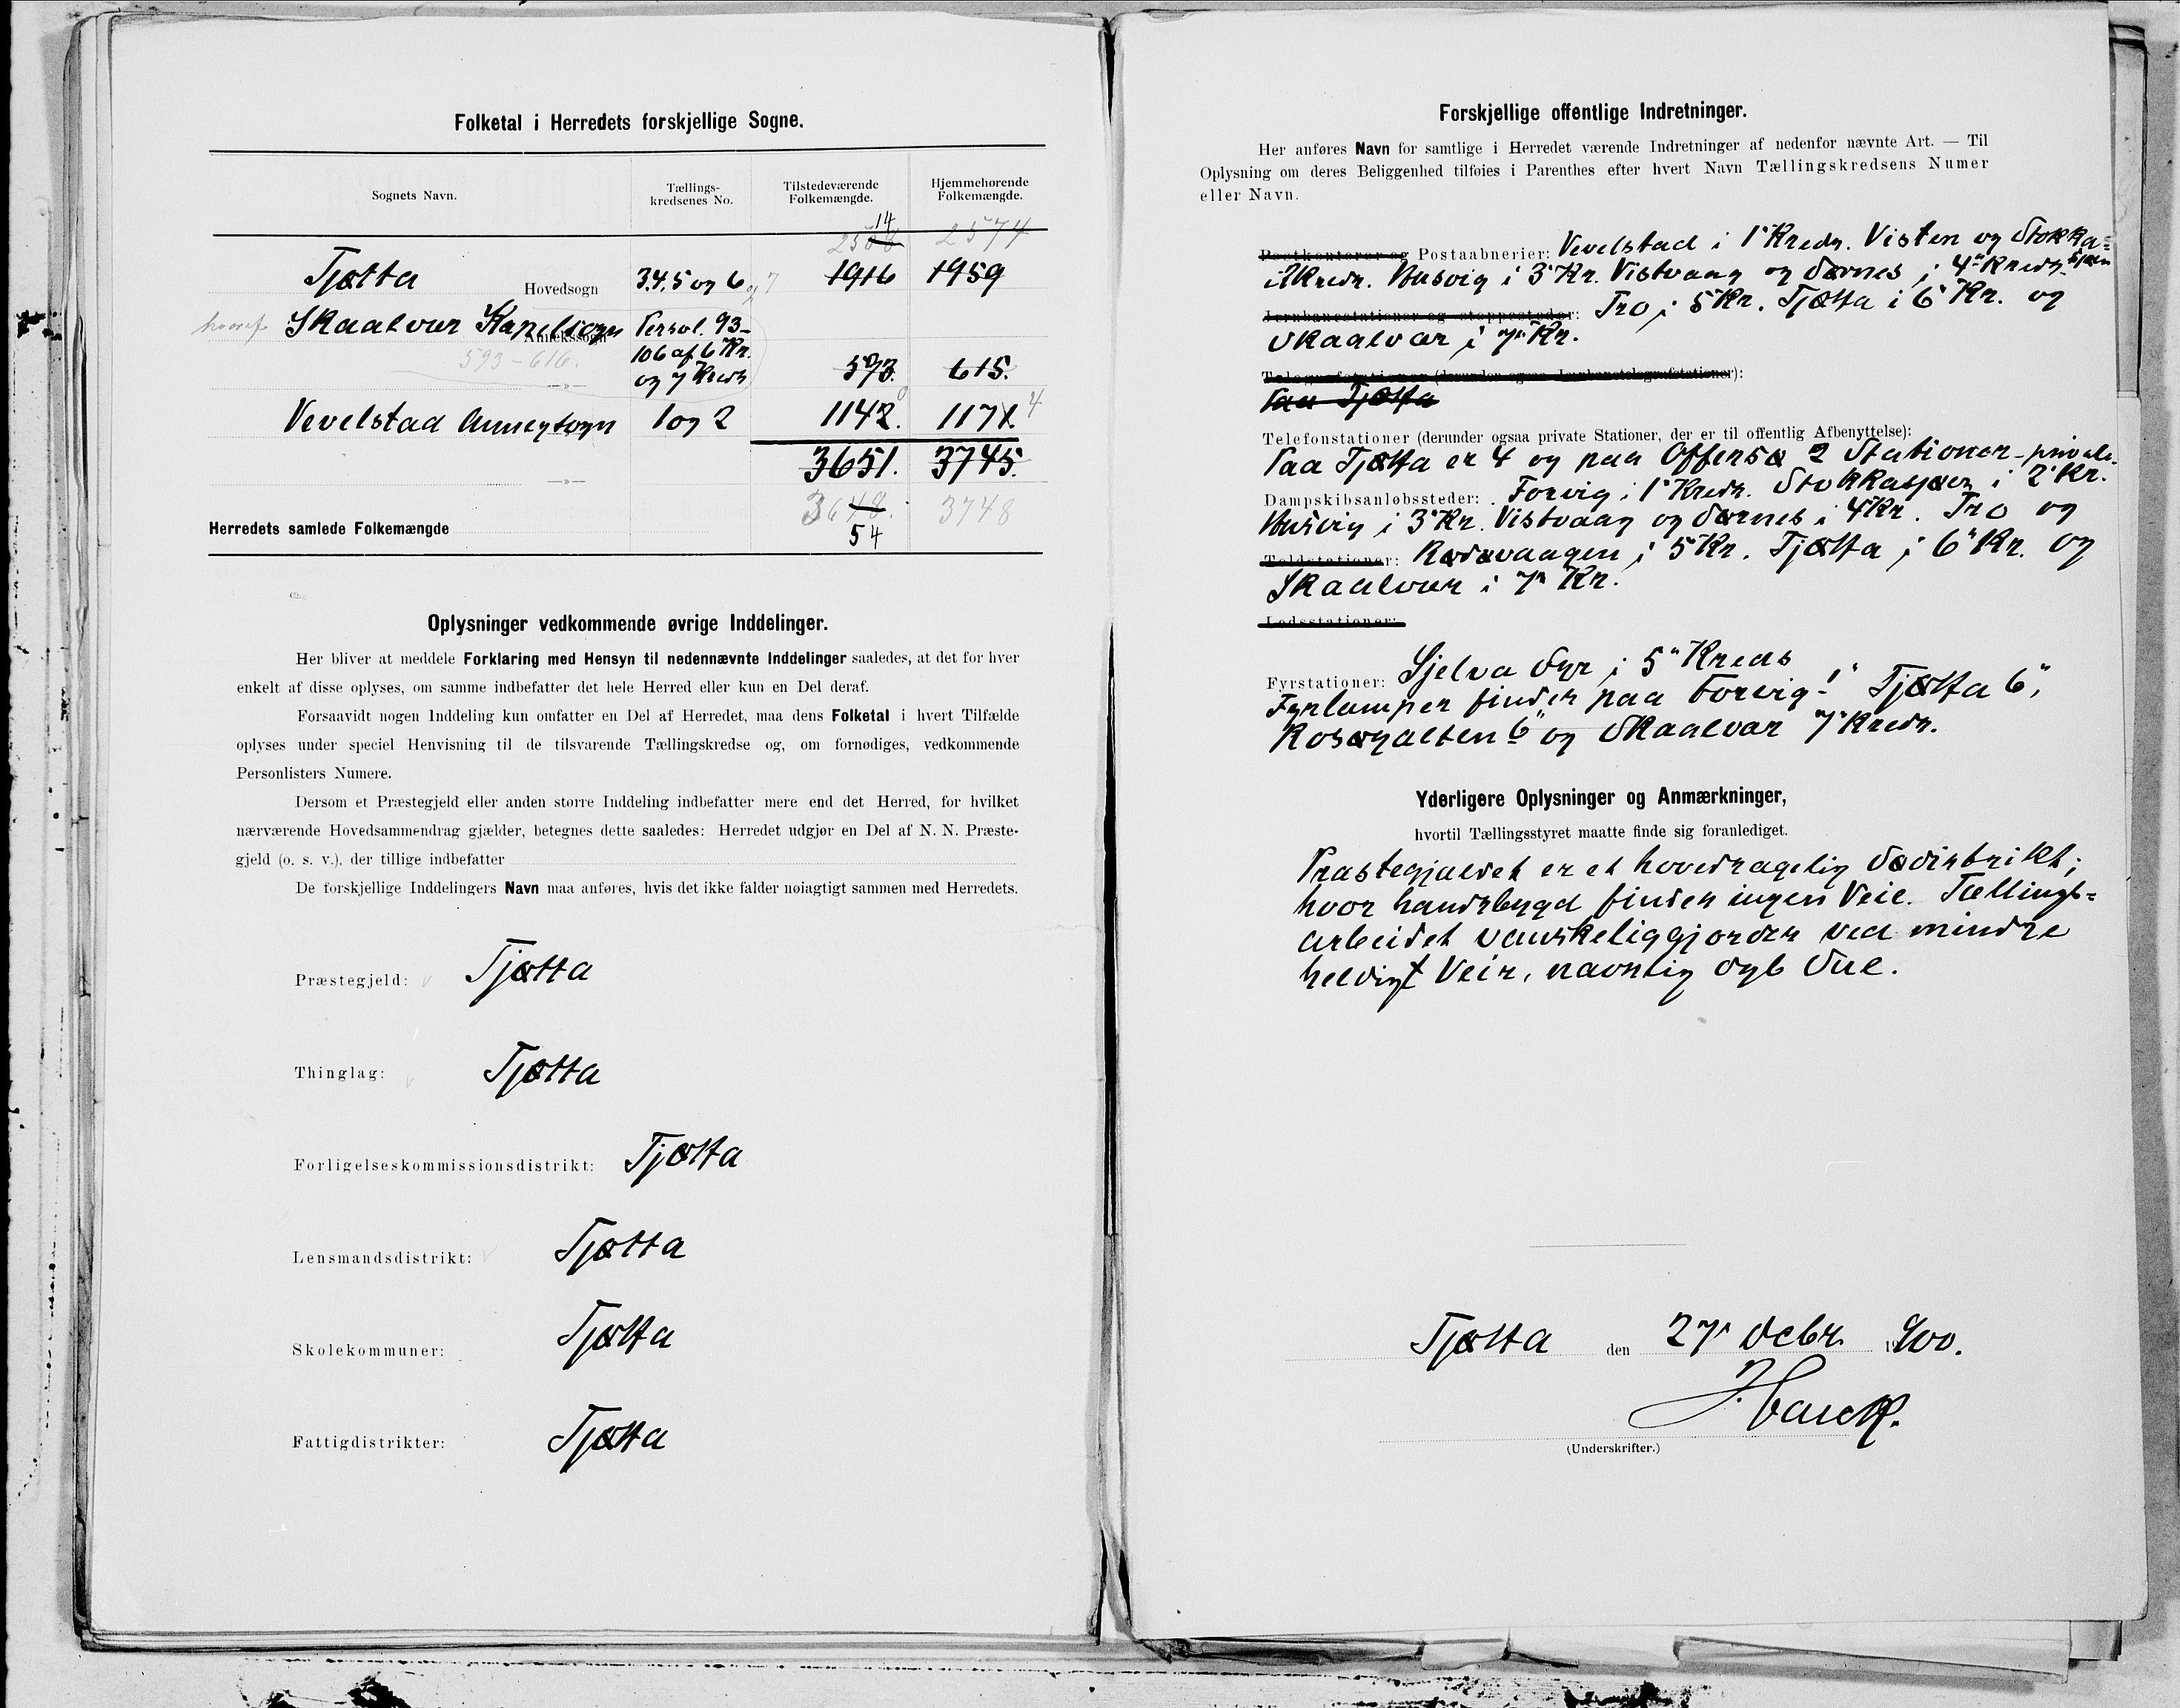 Folketal i Herredets forskjellige Sogne.
Sognets Navn.
Tællings-
kredsenes No.
Tilstedeværende
Folkemængde.
Hjemmehørende
Folkemængde.
14
2574
Tjøtta Hovedsogn 3.4.5 og 6 og 7 1916 1959
hvoraf Skaalvær Kapelsogn Persol. 93-
Annekssogn
593-616. 106 af 6 Kr.
og 7 Kreds 573. 615.
Vevelstad Annexsogn 1 og 2 1142. 0 1171. 4
3651. 3745.
3648. 3748
Herredets samlede Folkemængde 54
Oplysninger vedkommende øvrige Inddelinger.
Her bliver at meddele Forklaring med Hensyn til nedennævnte Inddelinger saaledes, at det for hver
enkelt af disse oplyses, om samme indbefatter det hele Herred eller kun en Del deraf.
Forsaavidt nogen Inddeling kun omfatter en Del af Herredet, maa dens Folketal i hvert Tilfælde
oplyses under speciel Henvisning til de tilsvarende Tællingskredse og, om fornødiges, vedkommende
Personlisters Numere.
Dersom et Præstegjeld eller anden større Inddeling indbefatter mere end det Herred, for hvilket
nærværende Hovedsammendrag gjælder, betegnes dette saaledes: Herredet udgjør en Del af N. N. Præste-
gjeld (o. s. v.), der tillige indbefatter
De forskjellige Inddelingers Navn maa anføres, hvis det ikke falder nøiagtigt sammen med Herredets.
Præstegjeld: Tjøtta
Thinglag: Tjøtta
Forligelseskommissionsdistrikt: Tjøtta
Lensmandsdistrikt: Tjøtta
Skolekommuner: Tjøtta
Fattigdistrikter: Tjøtta
Forskjellige offentlige Indretninger.
Her anføres Navn for samtlige i Herredet værende Indretninger af nedenfor nævnte Art. — Til
Oplysning om deres Beliggenhed tilføies i Parenthes efter hvert Navn Tællingskredsens Numer
eller Navn.
Postkontorer og Postaabnerier: Vevelstad i 1" Kreds. Visten og Stokka-
sjøen
i 2 Kreds. Husvig i 3" Kr. Vistvaag og Færnes i 4" Kreds.
Jernbanestationer og stoppesteder: Tro i 5" Kr. Tjøtta i 6" Kr. og
Skaalvær i 7" Kr.
Telegrafstationer (derunder ogsaa Jernbanetelegrafstationer):
Paa Tjøtta
Telefonstationer (derunder ogsaa private Stationer, der er til offentlig Afbenyttelse):
Paa Tjøtta er 4 og paa Offersø 2 Stationer - private.
Dampskibsanløbssteder: Forvig i 1" Kreds. Stokkasjøen i 2" Kr.
Husvig i 3" Kr. Vistvaag og Færnes i 4 Kr. Tro og
Toldstationer: Rødøvaagen i 5" Kr. Tjøtta i 6" Kr. og
Skaalvær i 7" Kr.
Lodsstationer:
Fyrstationer: Sjelva Fyr i 5" Kreds
Fyrlamper findes paa Forvig 1" Tjøtta 6",
6" og Skaalvær 7" Kreds.
Yderligere Oplysninger og Anmærkninger,
hvortil Tællingsstyret maatte finde sig foranlediget.
Præstegjældet er et hovedsagelig Sødistrikt;
hvor landsbygd findes ingen Veie. Tællings-
arbeidet vanskeliggjordes ved mindre
heldigt Veir, navnlig dyb Sne.
Tjøtta den 27" Decbr. 1900.
(Underskrifter.)